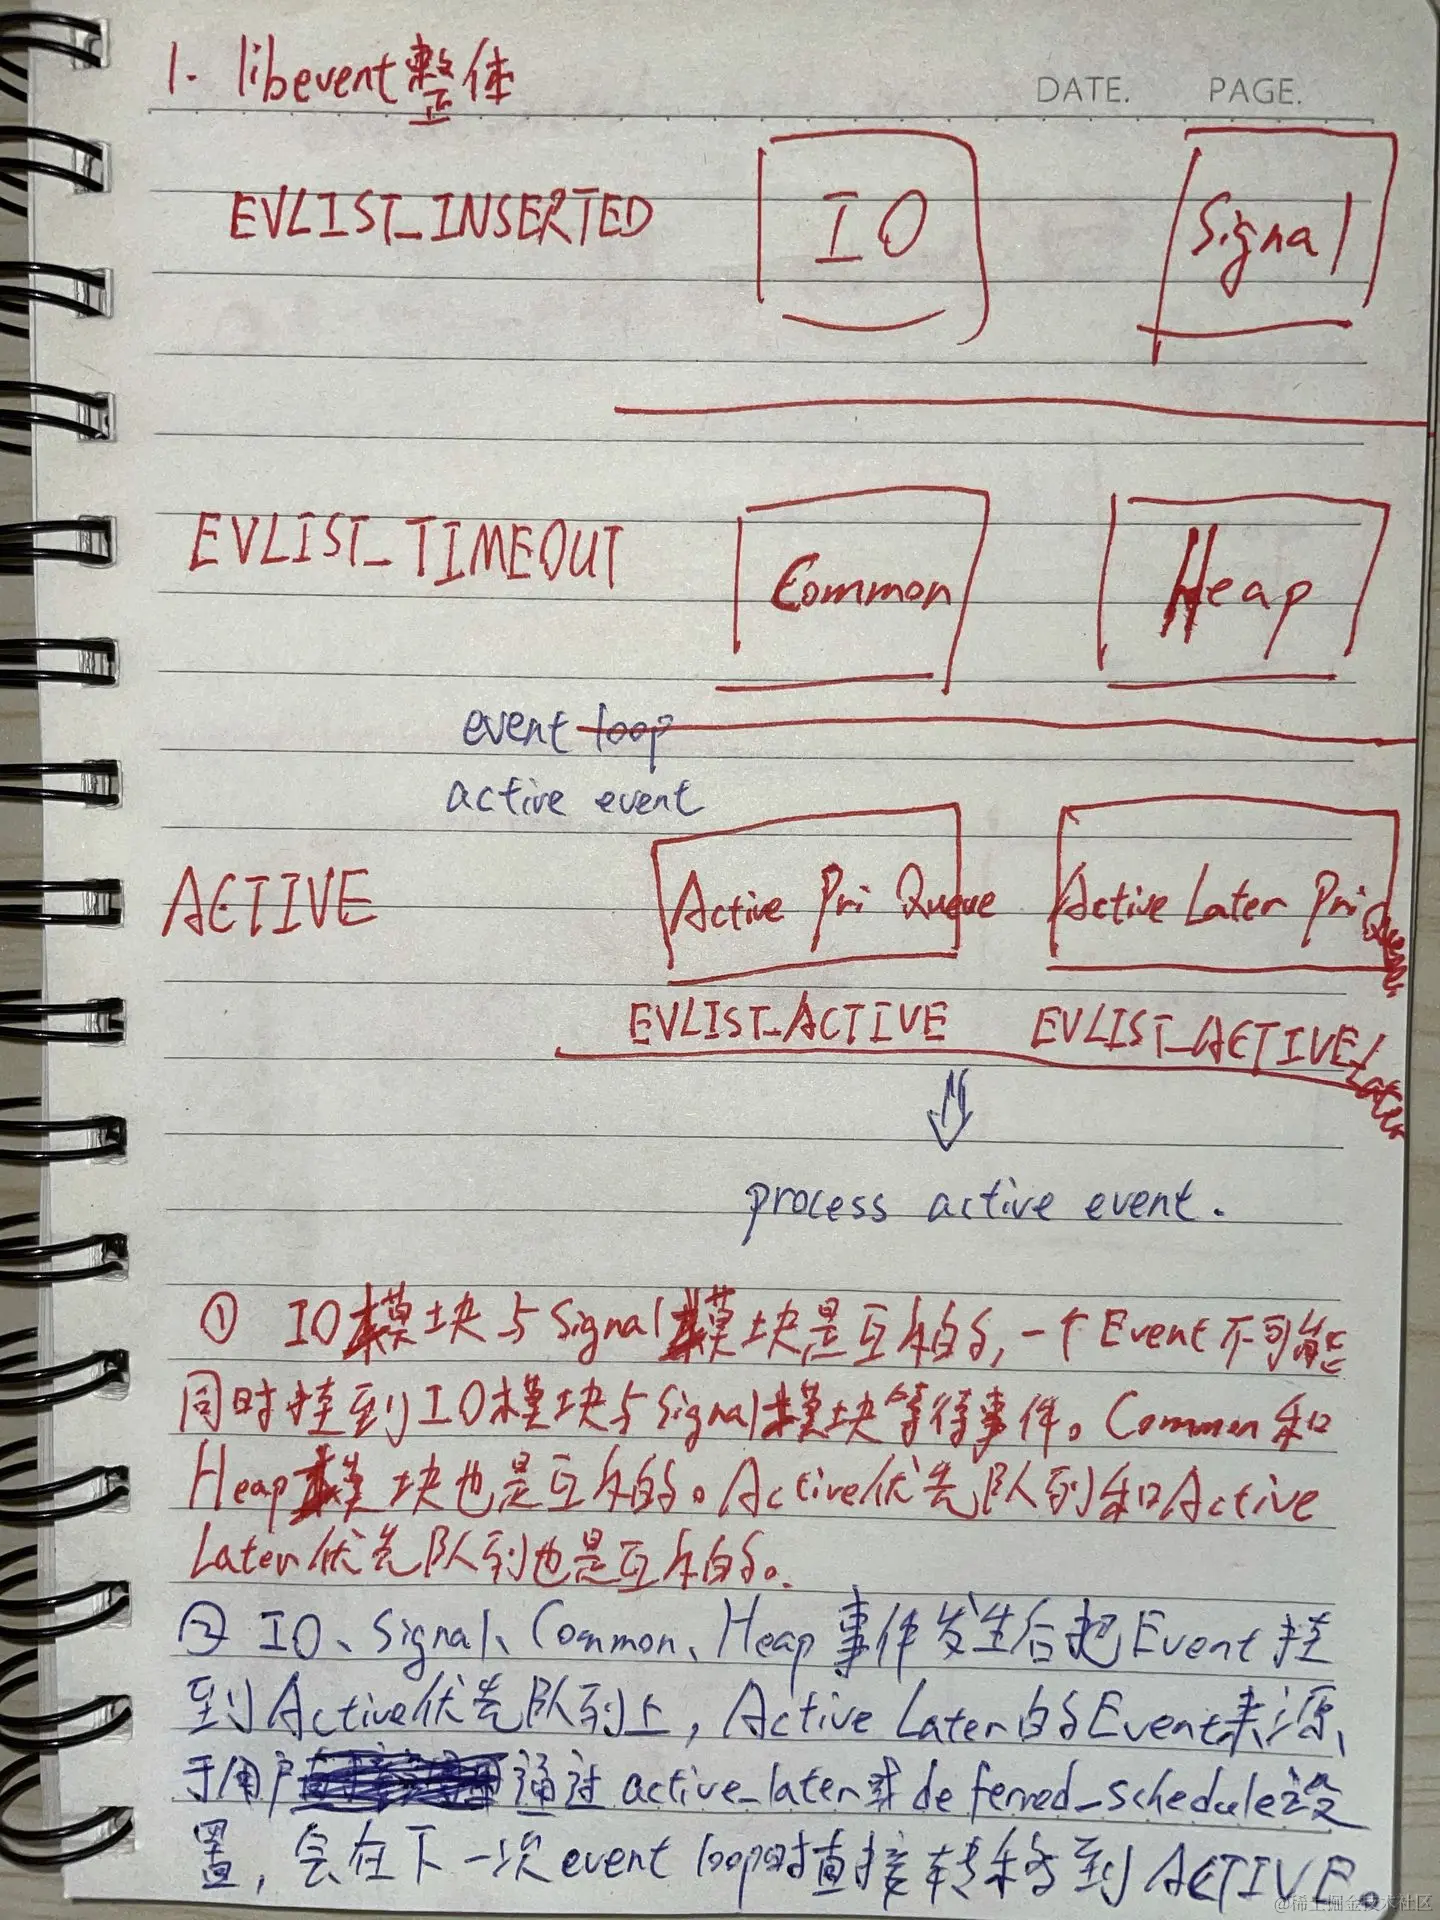 1. libevent整体
DATE. PAGE.
EVLIST_INSERTED IO Signal
EVLIST_TIMEOUT Common Heap
event loop
active event
ACTIVE Active Pri Queue Active Later Pri Queue
EVLIST_ACTIVE EVLIST_ACTIVE_Later
process active event.
① IO模块与Signal模块是互斥的,一个Event不可能
同时挂到IO模块与Signal模块等待事件。Common和
Heap模块也是互斥的。Active优先队列和Active
Later优先队列也是互斥的。
② IO、Signal、Common、Heap事件发生后把Event挂
到Active优先队列上,Active Later的Event来源
于用户通过active_later或deferred_schedule设
置,会在下一次event loop时直接转移到ACTIVE。
@稀土掘金技术社区